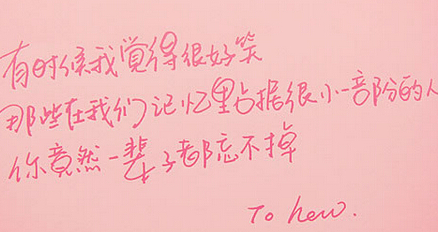 有时候我觉得很好笑
那些在我们记忆里占据很小一部分的人
你竟然一辈子都忘不掉
To hero.